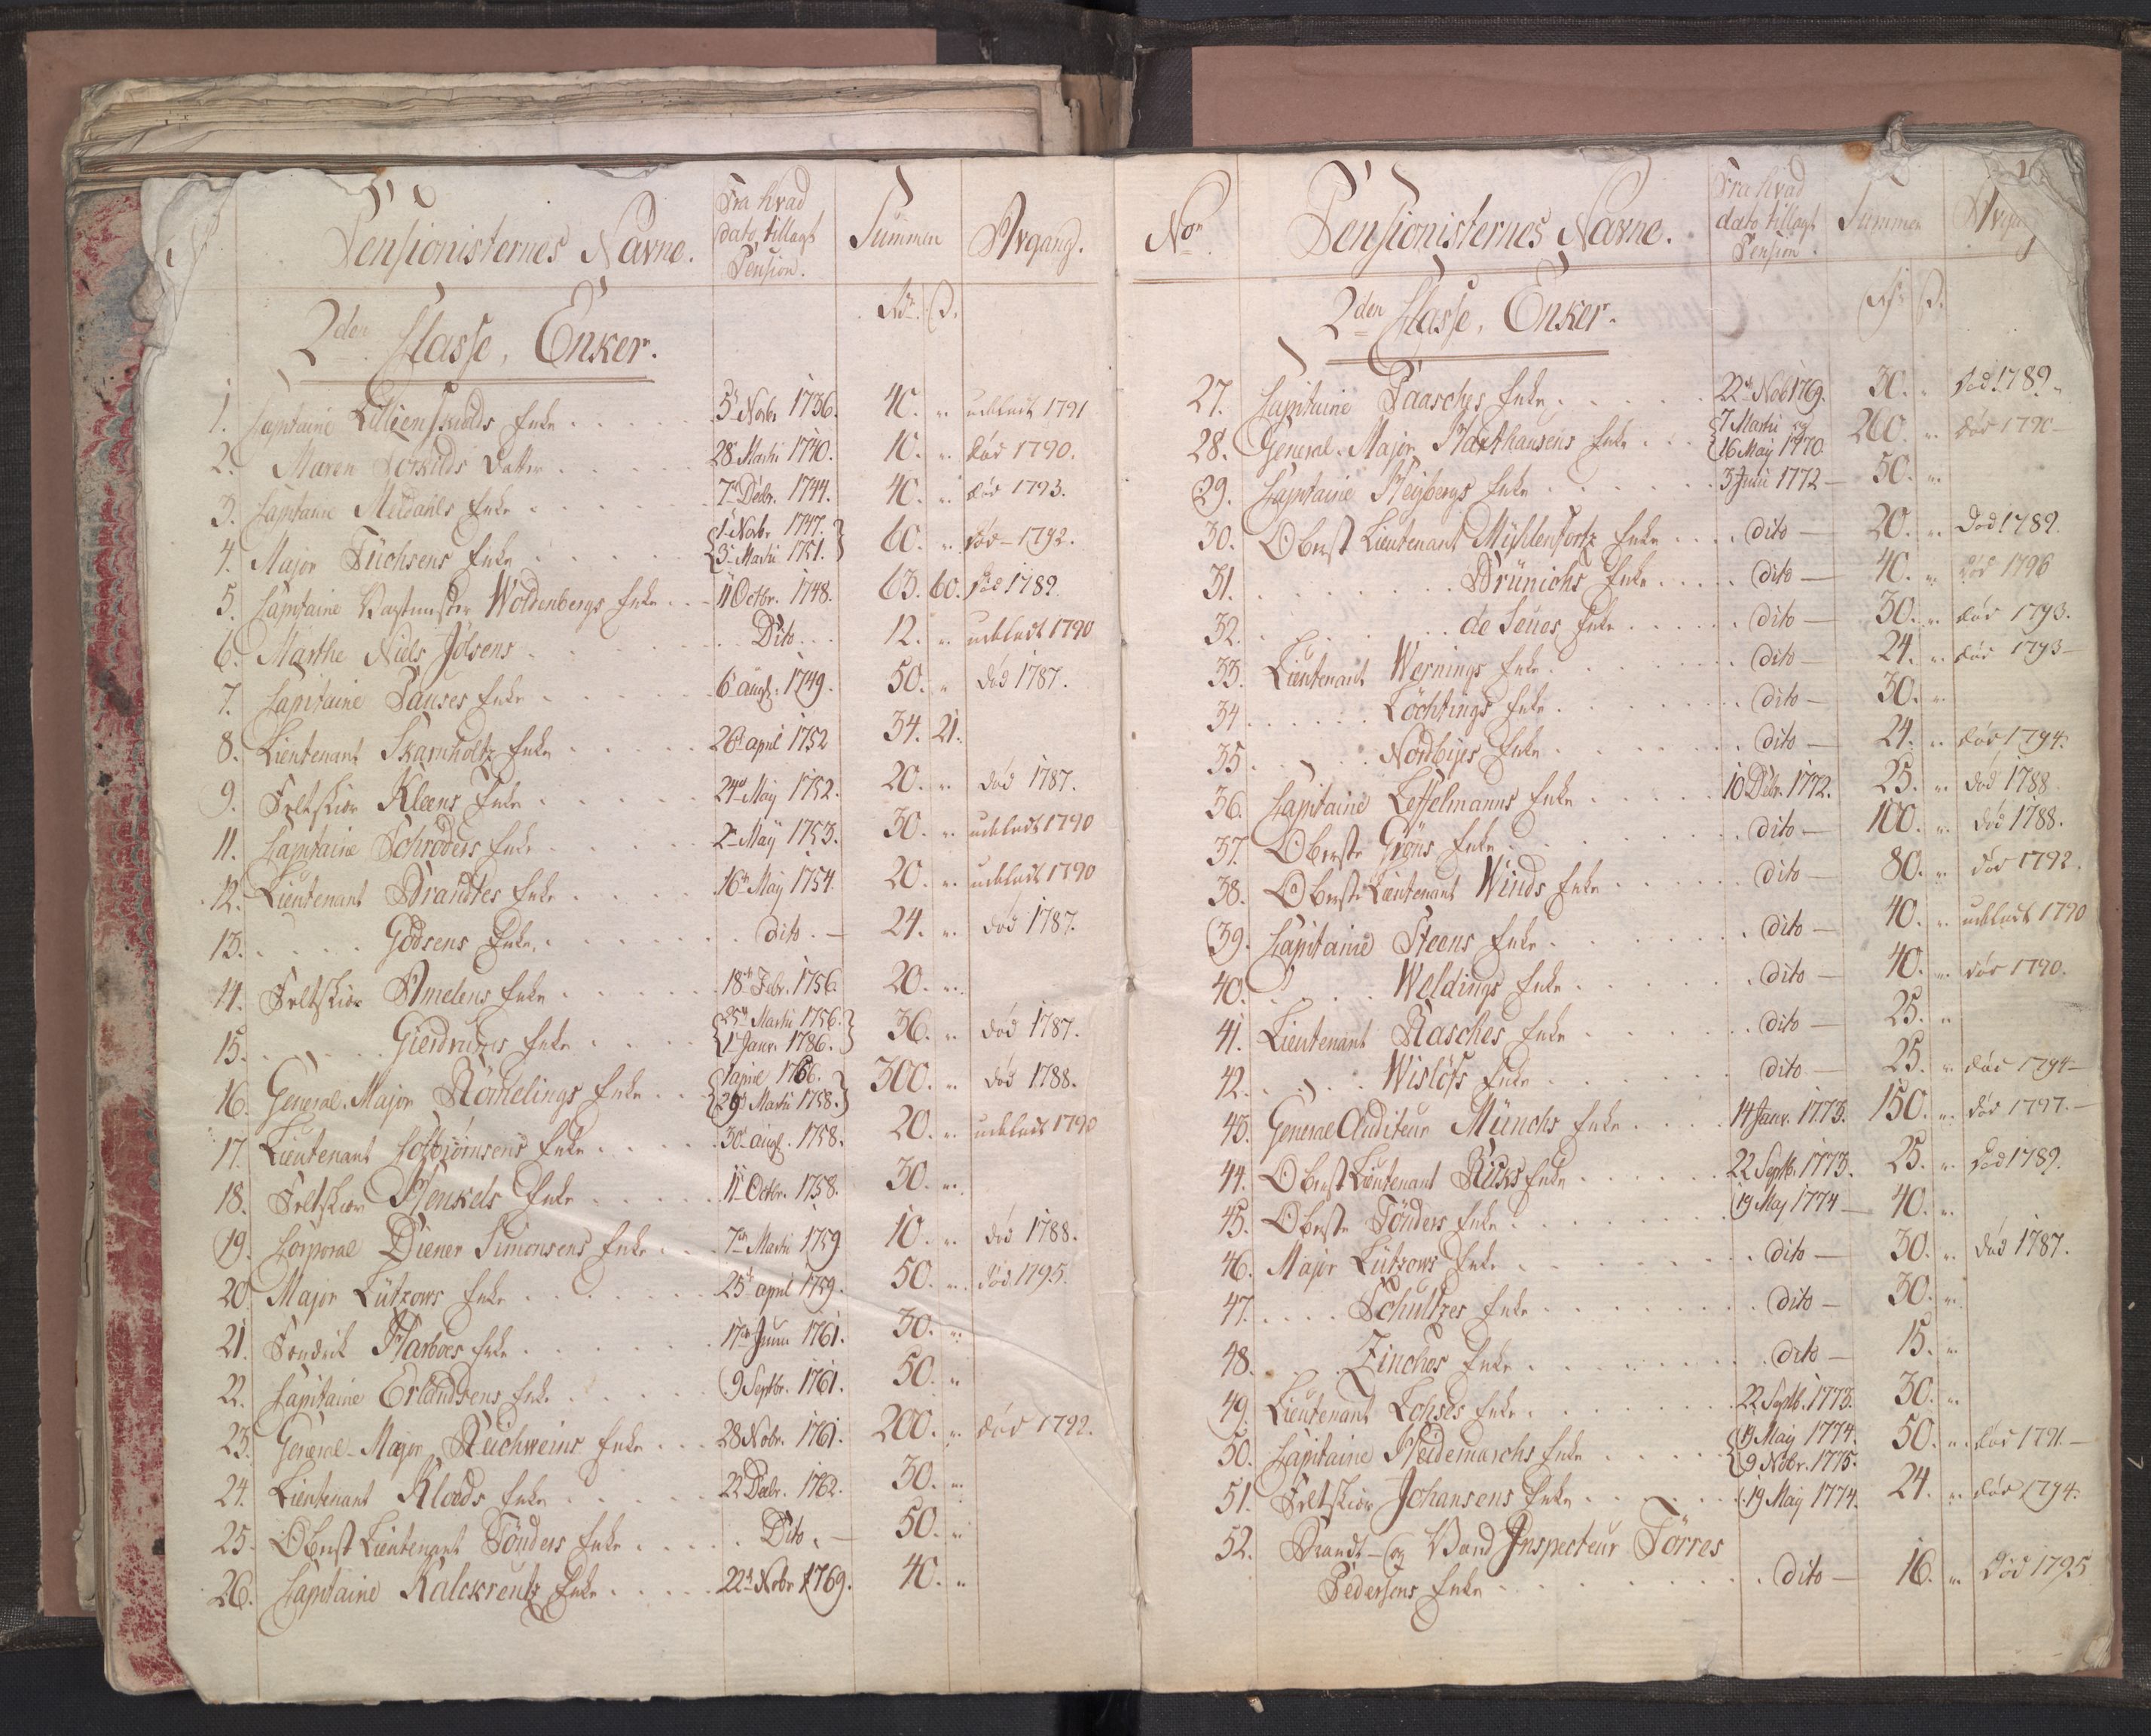 Pensionisternes Navne. Fra hvad dato tillagt Pension. Summen Afgang.
2den Classe, Enker. Rdr. S.
1. Capitaine Lillienskiolds Enke 5t Novbr 1736. 40. " udeladt 1791
2. Maren Torkilds Datter 28 Martii 1740. 10. " død 1790.
3. Capitaine Meldahls Enke 7de Decbr. 1744. 40. " død 1793.
4. Major Füchsens Enke {1t Novbr 1747. 3 Martii 1751.} 60. " død 1792.
5. Capitaine Vagtmester Woldenbergs Enke 11 Octbr. 1748. 63. 60. Død 1789.
6. Marthe Niels Jolsens Dito 12. " udeladt 1790
7. Capitaine Pauses Enke 6 augs. 1749. 50. " død 1787.
8. Lieutenant Skarnholtz Enke 26 april 1752 34. 21.
9. Feltskier Kleens Enke 24de May 1752. 20. " død 1787.
11. Capitaine Schrøders Enke 2 May 1753. 30. " udeladt 1790
12. Lieutenant Brandtes Enke 16de May 1754. 20. " udeladt 1790
13. Godsens Enke dito 24. " død 1787.
14. Feltskier Amelens Enke 18de Febr. 1756 20. "
15. Gierdrums Enke {25de Martii 1756. 1 Janv. 1786.} 36. " død 1787.
16. General-Major Römelings Enke {1 april 1766. 29 Martii 1758.} 300. " død 1788.
17. Lieutenant Colbiørnsens Enke 30 augs. 1758. 20. " udeladt 1790
18. Feltskier Henkels Enke 11 Octbr. 1758. 30. "
19. Corporal Diener Simonsens Enke 7de Martii 1759 10. " død 1788.
20. Major Lützows Enke 25de april 1759. 50. " død 1795.
21. Fendrik Harboes Enke 17de Junii 1761. 30. "
22. Capitaine Erlandsens Enke 9 Septbr. 1761. 50. "
23. General-Major Reichweins Enke 28 Nobr. 1761. 200. " død 1792.
24. Lieutenant Kloeds Enke 22 Decbr. 1762. 30. "
25. Oberst Lieutenant Tønders Enke Dito. 50. "
26. Capitaine Kalckreutz Enke 22de Nobr 1769. 40. "
No. Pensionisternes Navne. Fra hvad dato tillagt Pension. Summen
2den Classe, Enker. Rdr S.
27. Capitaine Paasches Enke 22de Nob 1769. 30. " død 1789.
28. General-Major Haxthausens Enke {7 Martii og 16 May 1770. 260. " død 1790
29. Capitaine Heybergs Enke 3 Junii 1772 50. "
30. Oberst Lieutenant Mühlenfortz Enke dito 20. " Død 1789.
31. Brünichs Enke dito 40. " død 1796
32. de Seues Enke dito 30. " død 1793.
33. Lieutenant Wernings Enke dito 24. " død 1793
34. Löchtings Enke dito 30. "
35. Nordbyes Enke dito 24. " død 1794.
36. Capitaine Leffelmanns Enke 10 Debr. 1772. 25. " død 1788
37. Oberste Grøns Enke dito 100. " død 1788.
38. Oberste Lieutenant Winds Enke dito 80. " død 1792.
39. Capitaine Steens Enke dito 40. " udeladt 1790
40. Weldings Enke dito 40. " død 1790.
41. Lieutenant Rasches Enke dito 25. "
42. Wisløfs Enke dito 25. " død 1794
43. General Auditeur Münchs Enke 14 Janv. 1773. 150. " død 1797.
44. Oberst Lieutenant Ricks Enke 22 Septb. 1773. 25. " død 1789.
45. Oberste Tønders Enke 19 May 1774 40. "
46. Major Lützows Enke dito 30. " død 1787.
47. Schultzes Enke dito 30. "
48. Zinckes Enke dito 15. "
49. Lieutenant Lohses Enke 22 Septb. 1773. 30. "
50. Capitaine Heidemarchs Enke {19 May 1774. 9 Nobr. 1775. 50. " død 1791
51. Feltskier Johansens Enke 19 May 1774. 24. " død 1794.
52. Brandt- og Vand Inspecteur Törres
Pedersens Enke dito 16. " Død 1795